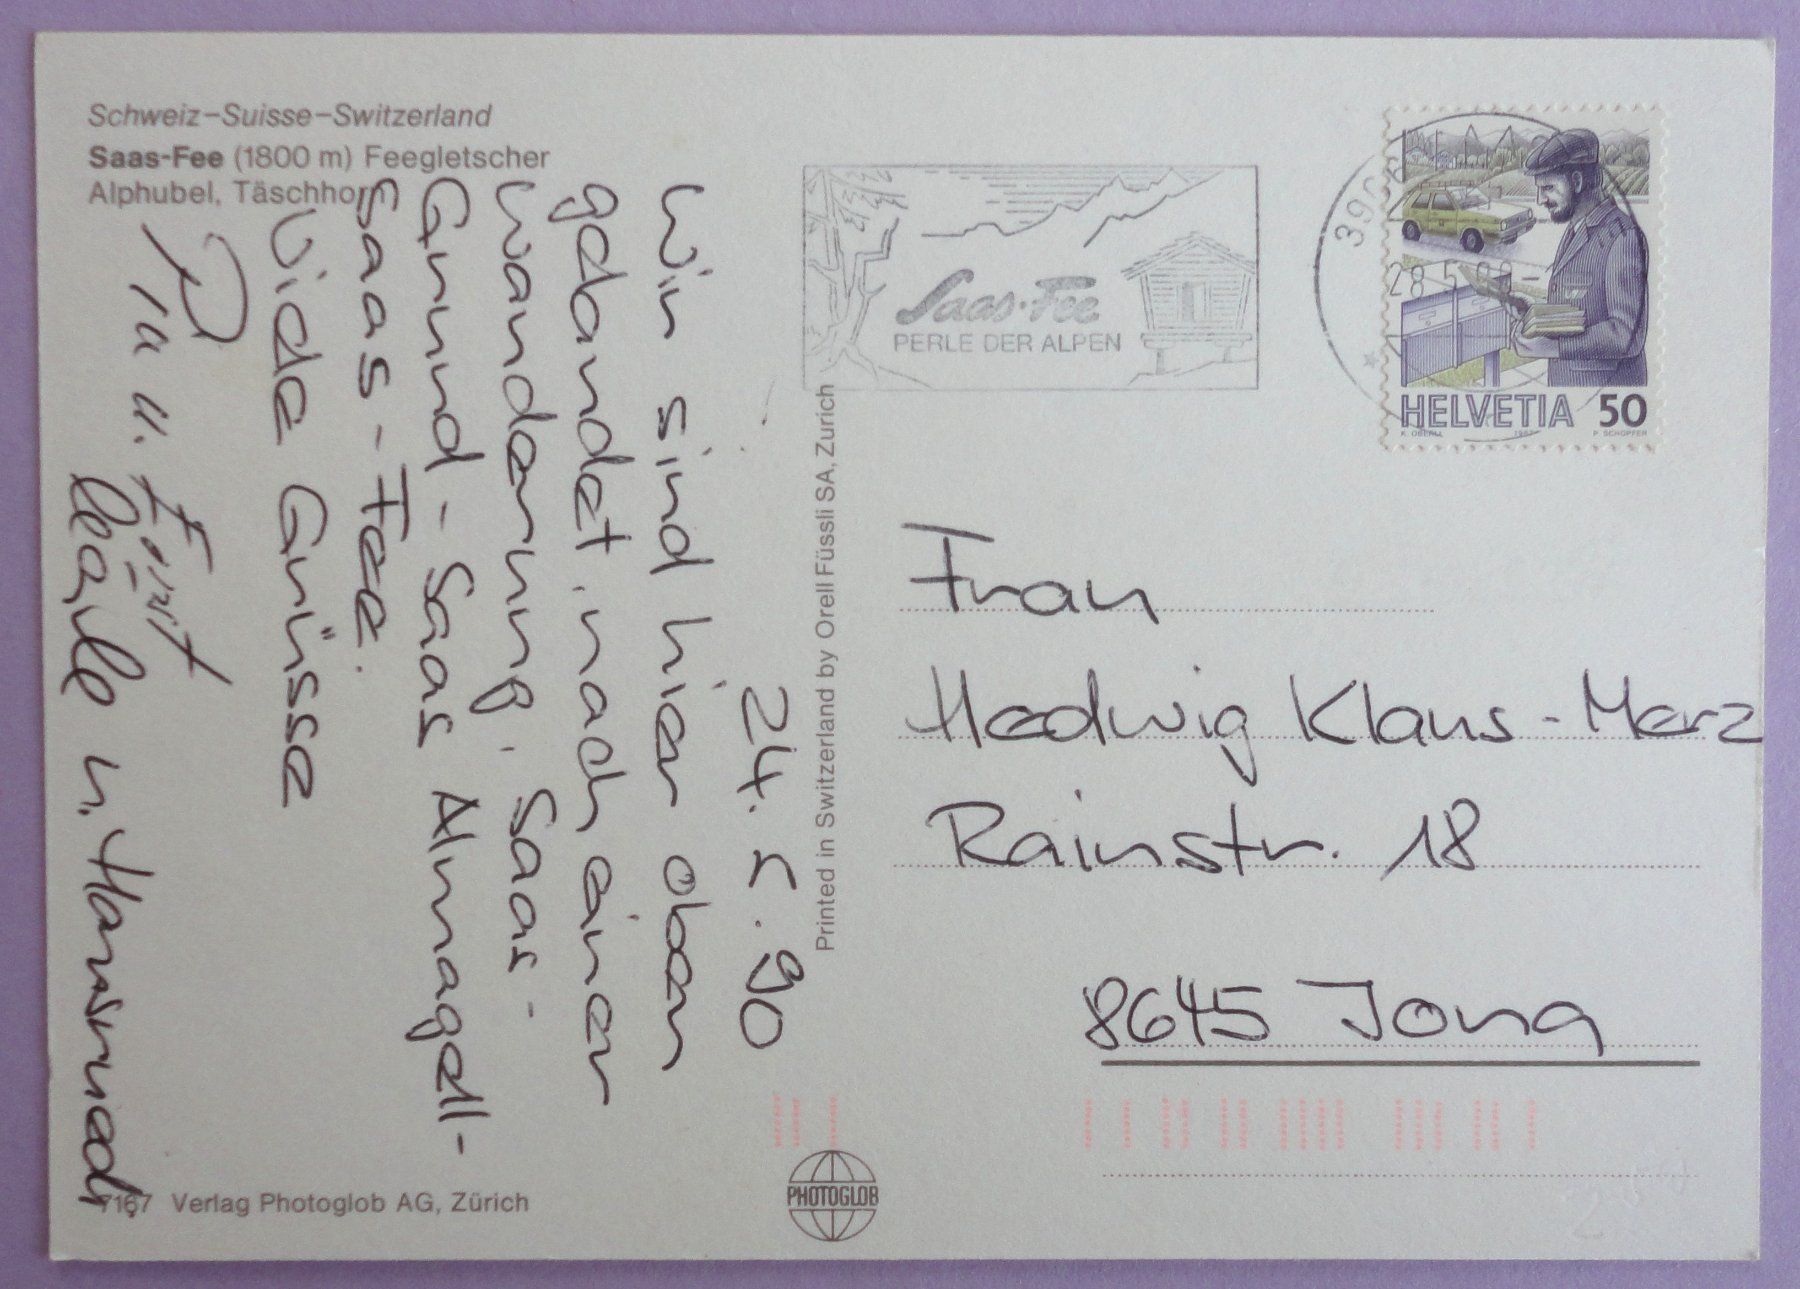 Schweiz–Suisse–Switzerland
Saas-Fee (1800 m) Feegletscher
Alphubel, Täschhorn
24. 5. 90
Wir sind hier oben
gelandet, nach einer
Wanderung. Saas-
Grund - Saas Almagell-
Saas-Fee.
Viele Grüsse
Pia u. Ernst
u. Hansruedi
7167 Verlag Photoglob AG, Zürich
Printed in Switzerland by Orell Füssli SA, Zurich
PHOTOGLOB
Saas-Fee
PERLE DER ALPEN
HELVETIA 50
K. OBERLI 1987 P. SCHOPFER
Frau
Hedwig Klaus-Merz
Rainstr. 18
8645 Jona